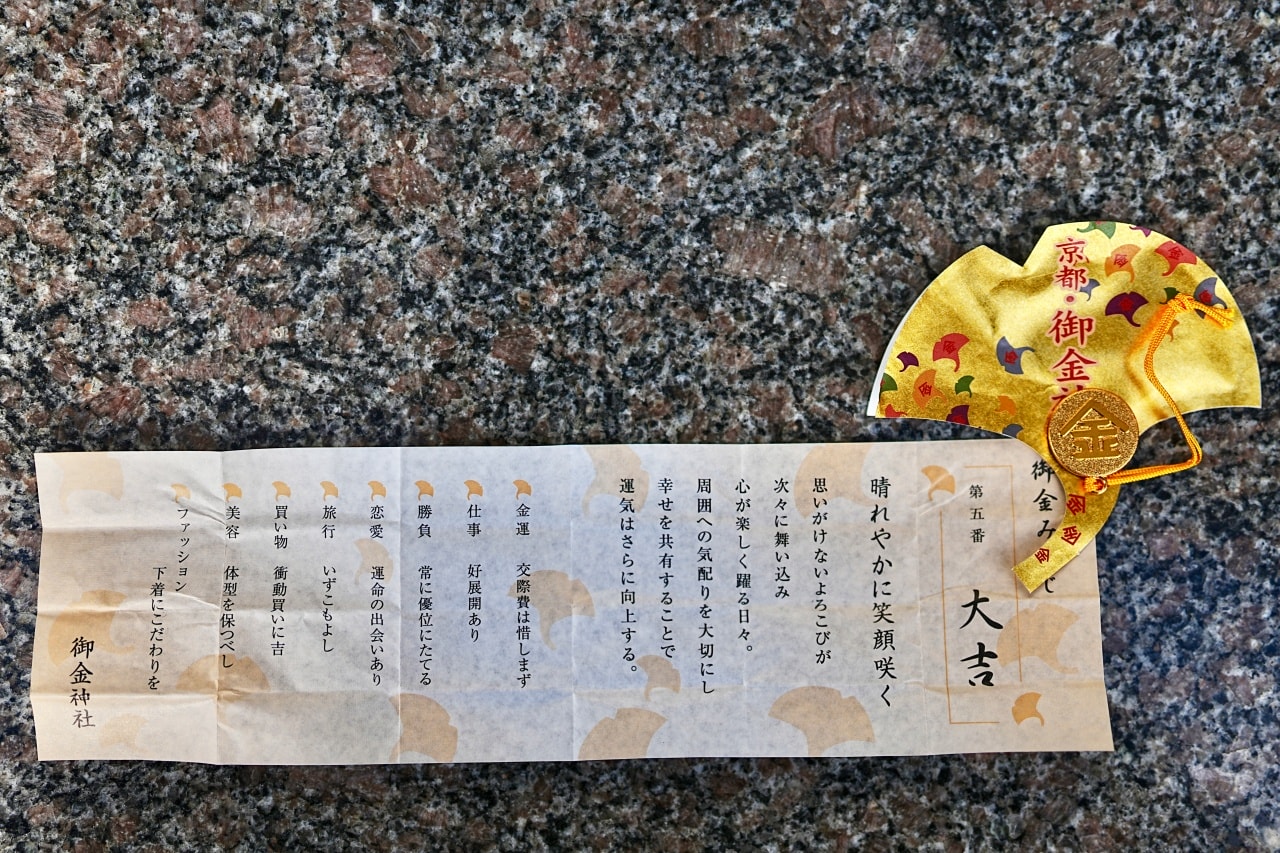 京都・御金神
金
御金み
じ
第五番
大吉
晴れやかに笑顔咲く
思いがけないよろこびが
次々に舞い込み
心が楽しく躍る日々。
周囲への気配りを大切にし
幸せを共有することで
運気はさらに向上する。
金運 交際費は惜しまず
仕事 好展開あり
勝負 常に優位にたてる
恋愛 運命の出会いあり
旅行 いずこもよし
買い物 衝動買いに吉
美容 体型を保つべし
ファッション 下着にこだわりを
御金神社